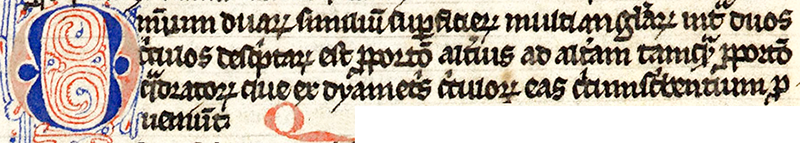 Omnium duarum similium superficierum multiangularum inter duos
circulos descriptarum est proportio alterius ad alteram tamquam proportio
quadratorum que ex dyametris circulorum eas circumscribentium p
ueniunt.